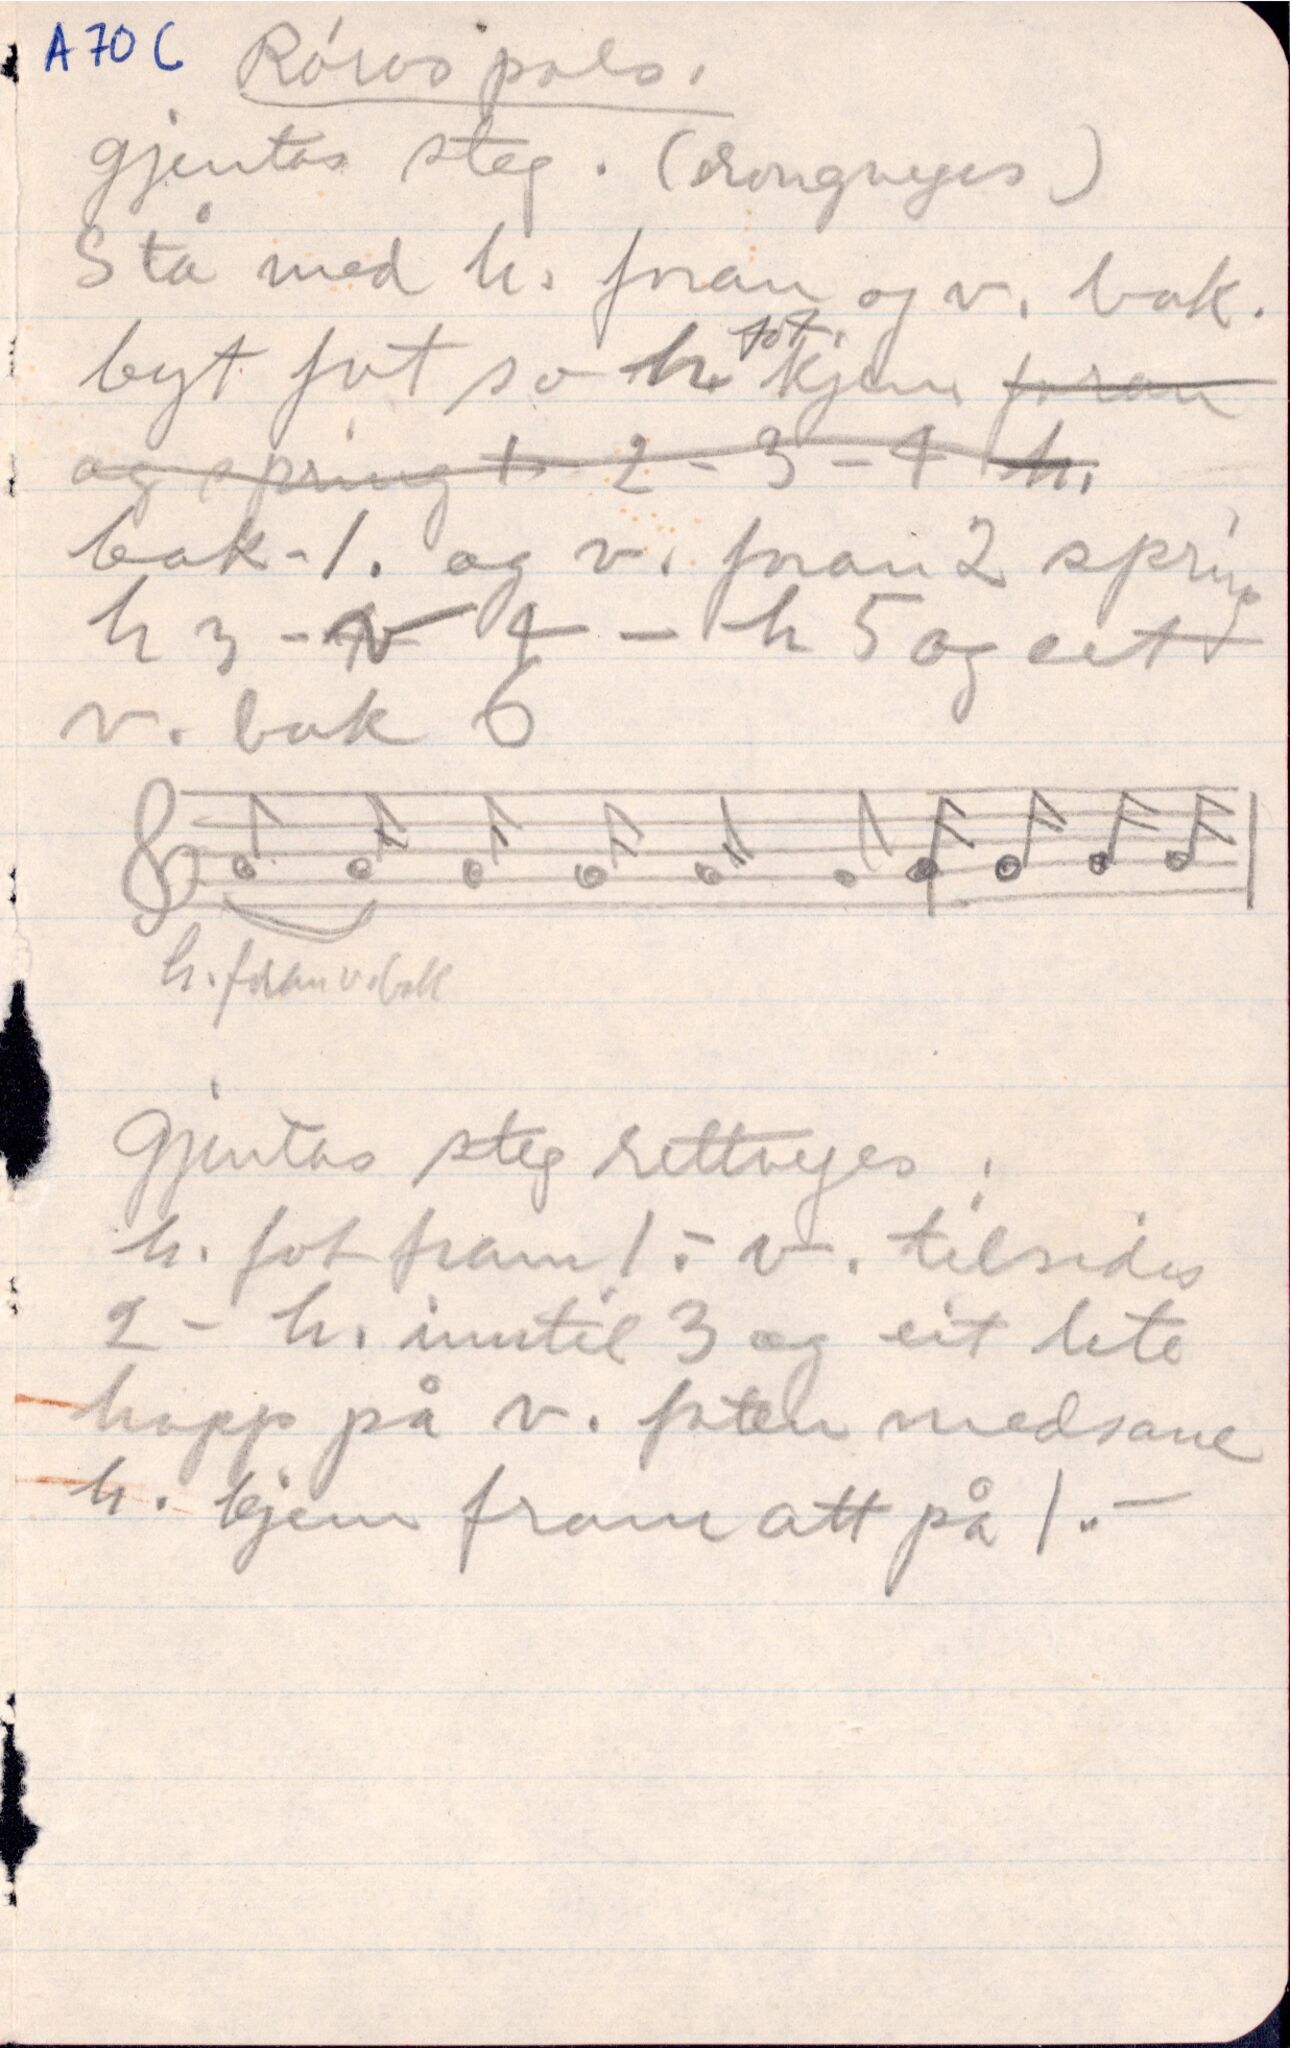 A 70 C
Röros pols.
gjentas steg. (vrongveges)
Stå med h. foran og v. bak.
byt fot so h. fot. kjem foran
og spring 1 2 - 3 - 4 h.
bak - 1. og v. foran 2 spring
h 3 - v 4 - h 5 og set
v. bak 6
h. foran v. bak
Gjentas steg rettveges.
h. fot fram 1. - v. tilsides
2 - h. inntil 3 og eit lite
hopp på v. foten medsane
h. kjem fram att på 1. -